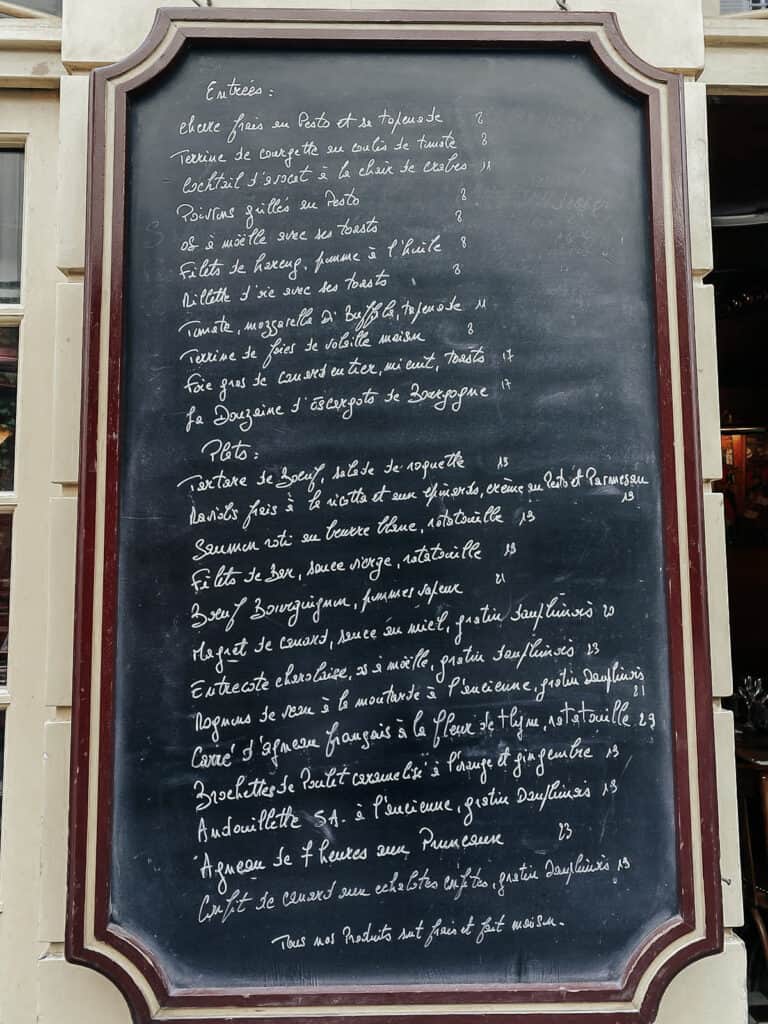 Entrées :
chevre frais au Pesto et sa tapenade 8
Terrine de courgette au coulis de tomate 8
Cocktail d'avocat à la chair de crabes 11
Poivrons grillés au Pesto 8
os à moëlle avec ses toasts 8
Filets de hareng, pomme à l'huile 8
Rillette d'oie avec ses toasts 8
Tomate, mozzarella Di Buffala, tapenade 11
Terrine de foies de volaille maison 8
Foie gras de canard entier, mi cuit, toasts 17
La Douzaine d'Escargots de Bourgogne 17
Plats :
Tartare de Boeuf, salade de roquette 19
Raviolis frais à la ricotta et aux épinards, crème au Pesto et Parmesan
19
Saumon roti au beurre blanc, ratatouille 19
Filets de Bar, sauce vierge, ratatouille 19
Boeuf Bourguignon, pommes vapeur 21
Magret de canard, sauce au miel, gratin dauphinois 20
Entrecote charolaise, os à moëlle, gratin dauphinois 23
Rognons de veau à la moutarde à l'ancienne, gratin Dauphinois
21
Carré d'agneau français à la fleur de thym, ratatouille 23
Brochettes de Poulet caramelisé à l'orange et gingembre 19
Andouillette 5A. à l'ancienne, gratin Dauphinois 19
Agneau de 7 heures aux Pruneaux 23
Confit de canard aux echalotes confites, gratin Dauphinois 19
Tous nos Produits sont frais et fait maison.